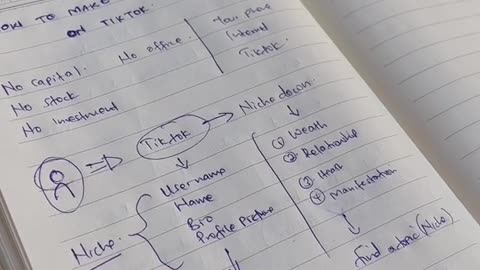 TO MAKE
on TIKTOK.
No capital.
No office.
No stock
No investment
Your phone
Internet
TikTok.
TikTok
Niche down.
Username
Name
Bio
Profile Picture
Niche.
① Weath
② Relationship
③
④ Manifestation
find a topic (Niche)